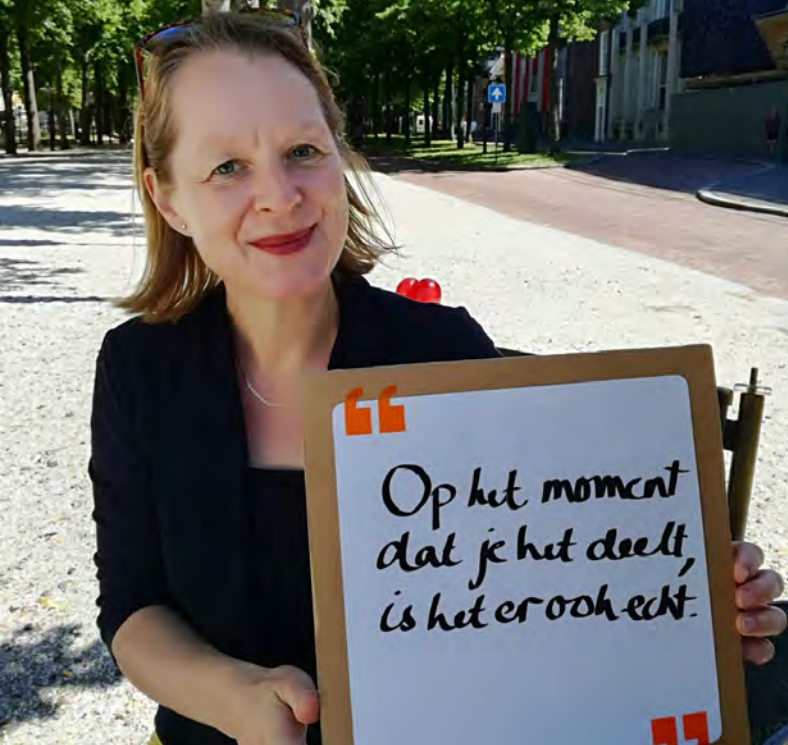 Op het moment
dat je het deelt,
is het er ook echt.